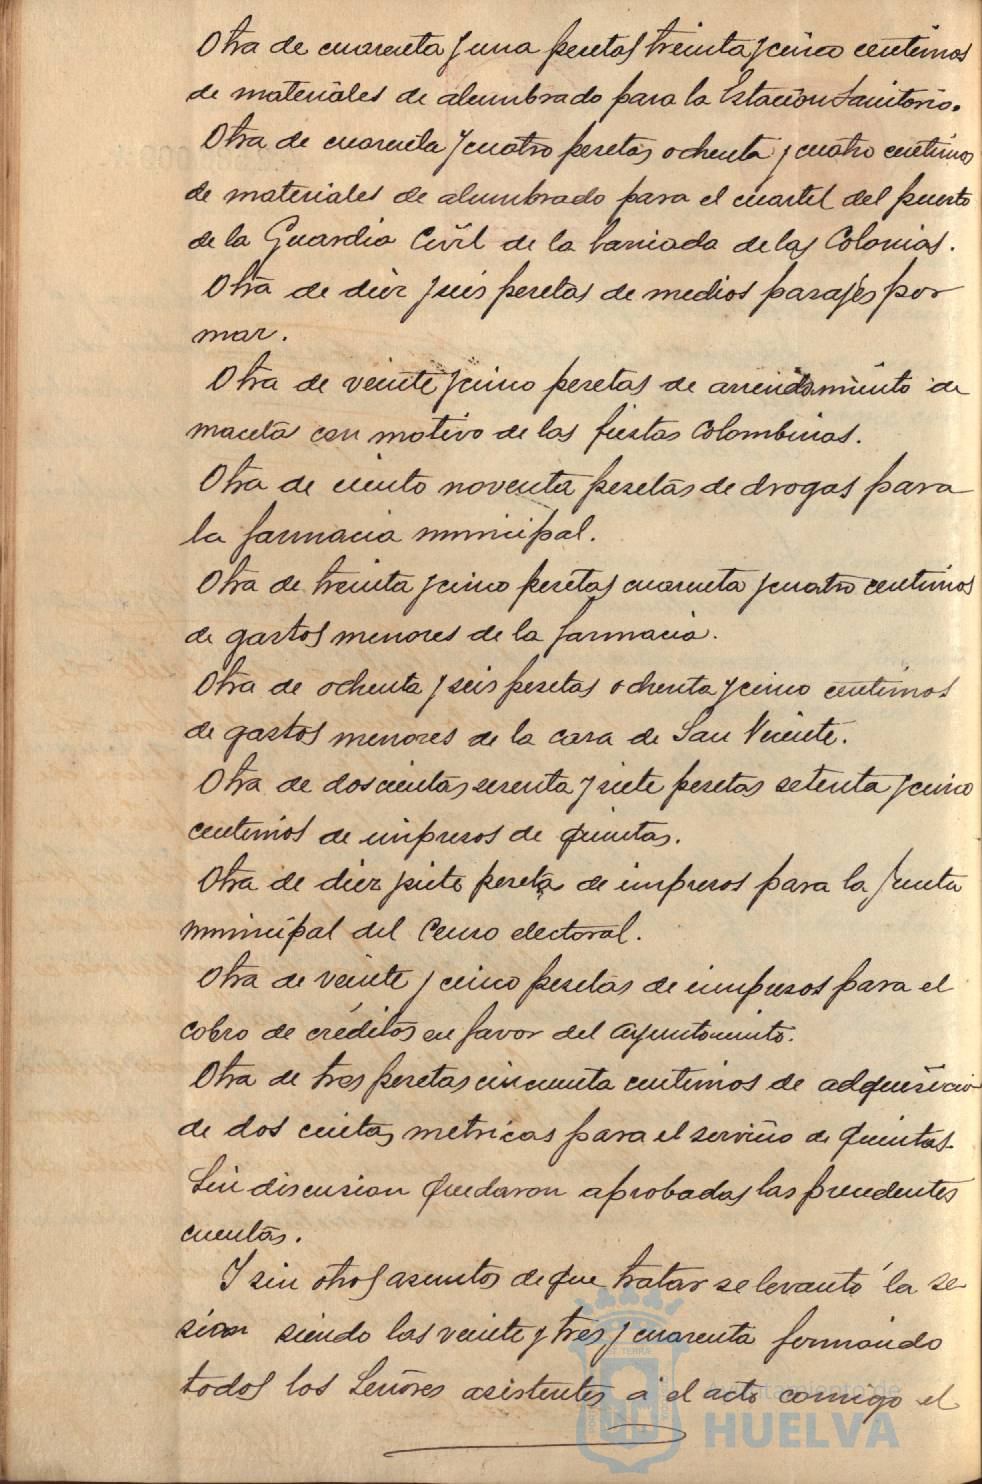 Otra de cuarenta y una pesetas treinta y cinco centimos
de materiales de alumbrado para la Estacion Sanitaria.
Otra de cuarenta y cuatro pesetas ochenta y cuatro centimos
de materiales de alumbrado para el cuartel del puesto
de la Guardia Civil de la barriada de las Colonias.
Otra de diez y seis pesetas de medios pasajes por
mar.
Otra de veinte y cinco pesetas de arriendamiento de
maceta con motivo de las fiestas Colombinas.
Otra de ciento noventa pesetas de drogas para
la farmacia municipal.
Otra de treinta y cinco pesetas cuarenta y cuatro centimos
de gastos menores de la farmacia.
Otra de ochenta y seis pesetas ochenta y cinco centimos
de gastos menores de la casa de San Vicente.
Otra de doscientas sesenta y siete pesetas setenta y cinco
centimos de impresos de quintas.
Otra de diez y siete pesetas de impresos para la Junta
municipal del Censo electoral.
Otra de veinte y cinco pesetas de impresos para el
cobro de créditos en favor del Ayuntamiento.
Otra de tres pesetas cincuenta centimos de adquisicion
de dos cintas metricas para el servicio de quintas.
Sin discusion quedaron aprobadas las precedentes
cuentas.
Y sin otros asuntos de que tratar se levantó la se-
sion siendo las veinte y tres y cuarenta firmando
todos los Señores asistentes á el acto conmigo el
Ayuntamiento de
HUELVA